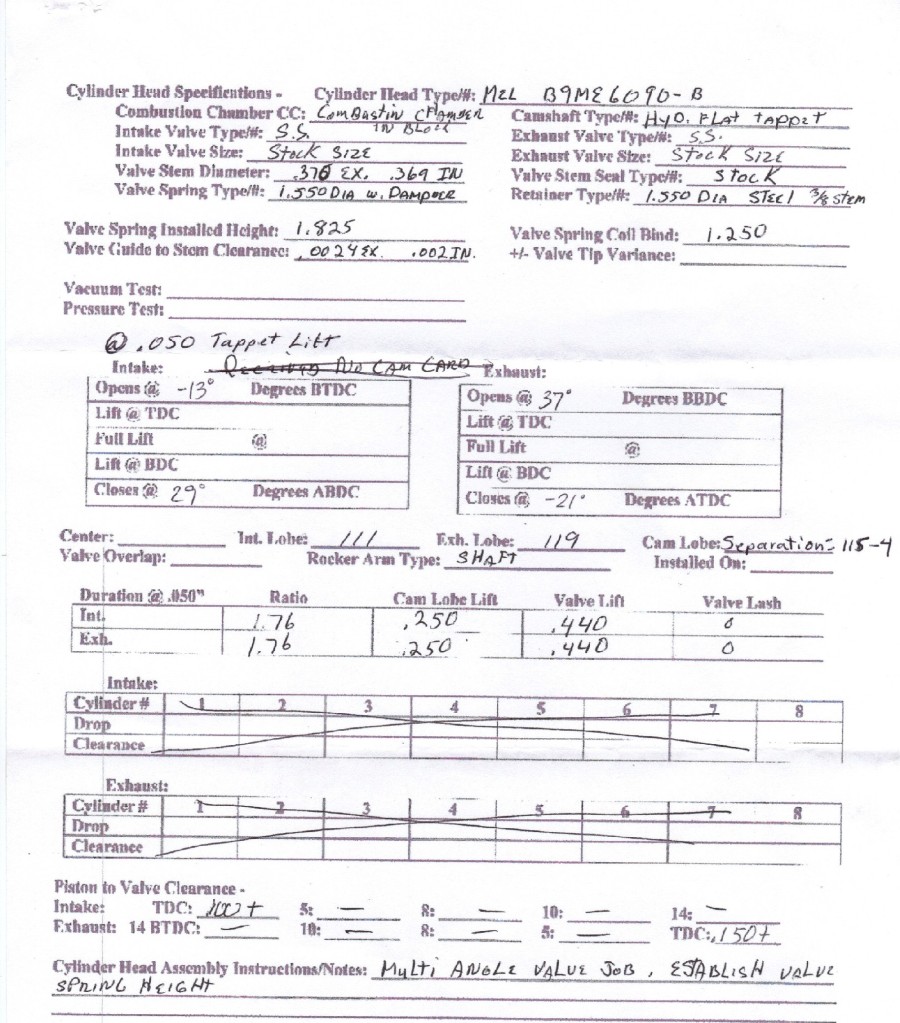 Cylinder Head Specifications - Cylinder Head Type/#: MEL B9ME6090-B
Combustion Chamber CC: ComBastin CHAMBER IN BLOCK Camshaft Type/#: HyD. FLAT TAPPET
Intake Valve Type/#: S.S. Exhaust Valve Type/#: S.S.
Intake Valve Size: Stock SIZE Exhaust Valve Size: Stock SIZE
Valve Stem Diameter: .370 EX. .369 IN Valve Stem Seal Type/#: STOCK
Valve Spring Type/#: 1.550 DIA w. DAMPOER Retainer Type/#: 1.550 DIA STEEl 3/8 STEM
Valve Spring Installed Height: 1.825 Valve Spring Coil Bind: 1.250
Valve Guide to Stem Clearance: .0024 EX. .002 IN. +/- Valve Tip Variance:
Vacuum Test:
Pressure Test:
@ .050 Tappet Lift
Intake: NO CAM CARD Exhaust:
Opens @ -13° Degrees BTDC Opens @ 37° Degrees BBDC
Lift @ TDC Lift @ TDC
Full Lift @ Full Lift @
Lift @ BDC Lift @ BDC
Closes @ 29° Degrees ABDC Closes @ -21° Degrees ATDC
Center: Int. Lobe: 111 Exh. Lobe: 119 Cam Lobe: Separation- 115-4
Valve Overlap: Rocker Arm Type: SHAFT Installed On:
Duration @ .050" Ratio Cam Lobe Lift Valve Lift Valve Lash
Int. 1.76 .250 .440 0
Exh. 1.76 .250 .440 0
Intake:
Cylinder # 1 2 3 4 5 6 7 8
Drop
Clearance
Exhaust:
Cylinder # 1 2 3 4 5 6 7 8
Drop
Clearance
Piston to Valve Clearance -
Intake: TDC: .100+ 5: — 8: — 10: — 14: —
Exhaust: 14 BTDC: — 10: — 8: — 5: — TDC: .150+
Cylinder Head Assembly Instructions/Notes: MulTi ANGLE VALVE JOB, ESTABLISH VALVE
SPRING HEIGHT